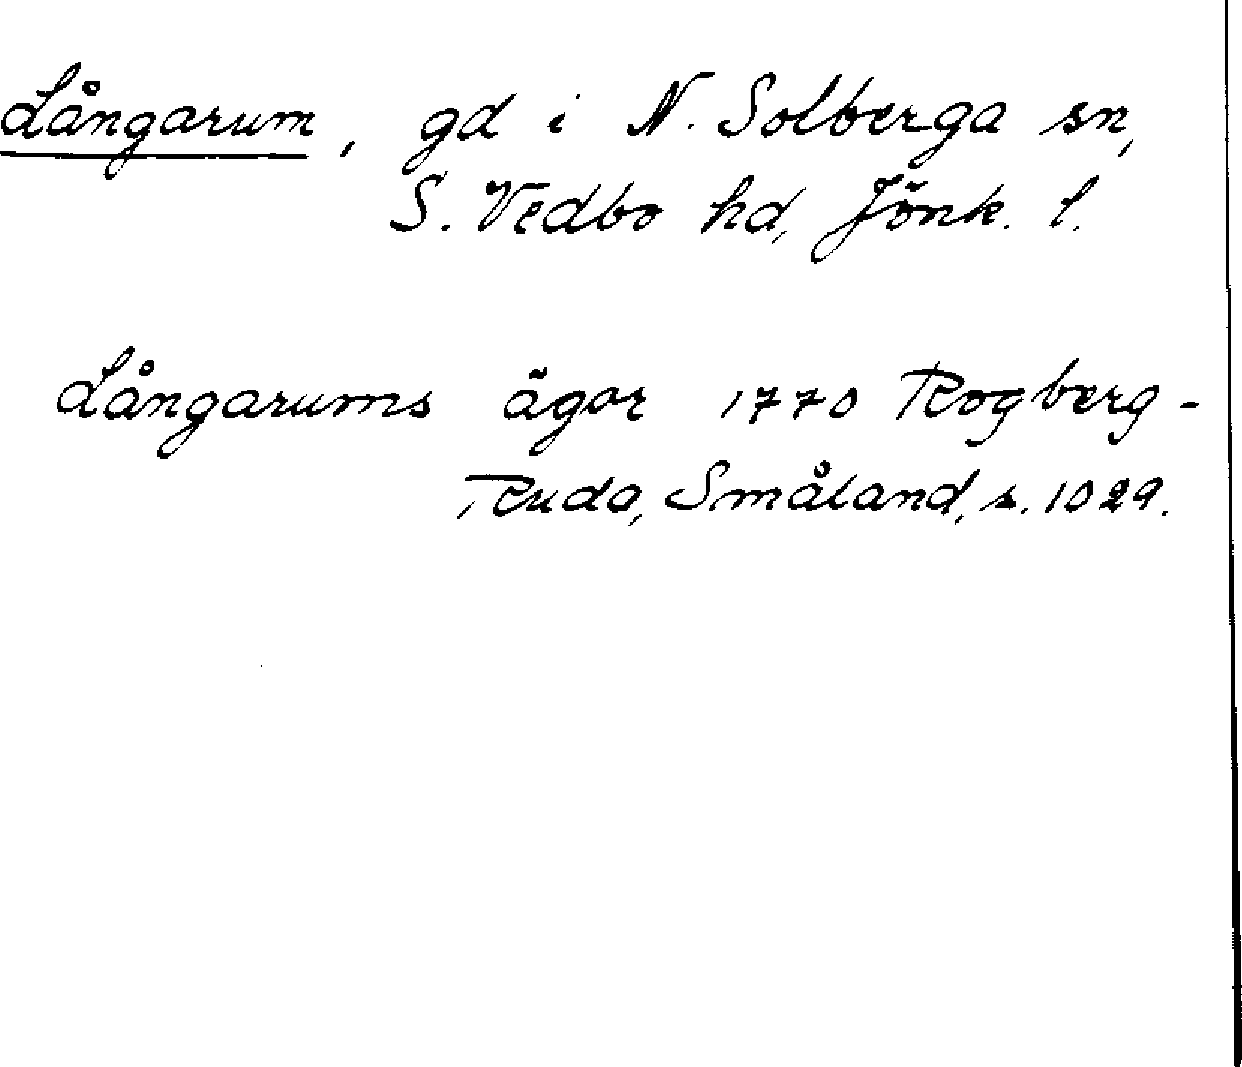 Långarum, gd i N. Solberga sn,
S. Vedbo hd, Jönk. l.
Långarums ägor 1770 Rogberg-
Ruda, Småland, s. 1029.